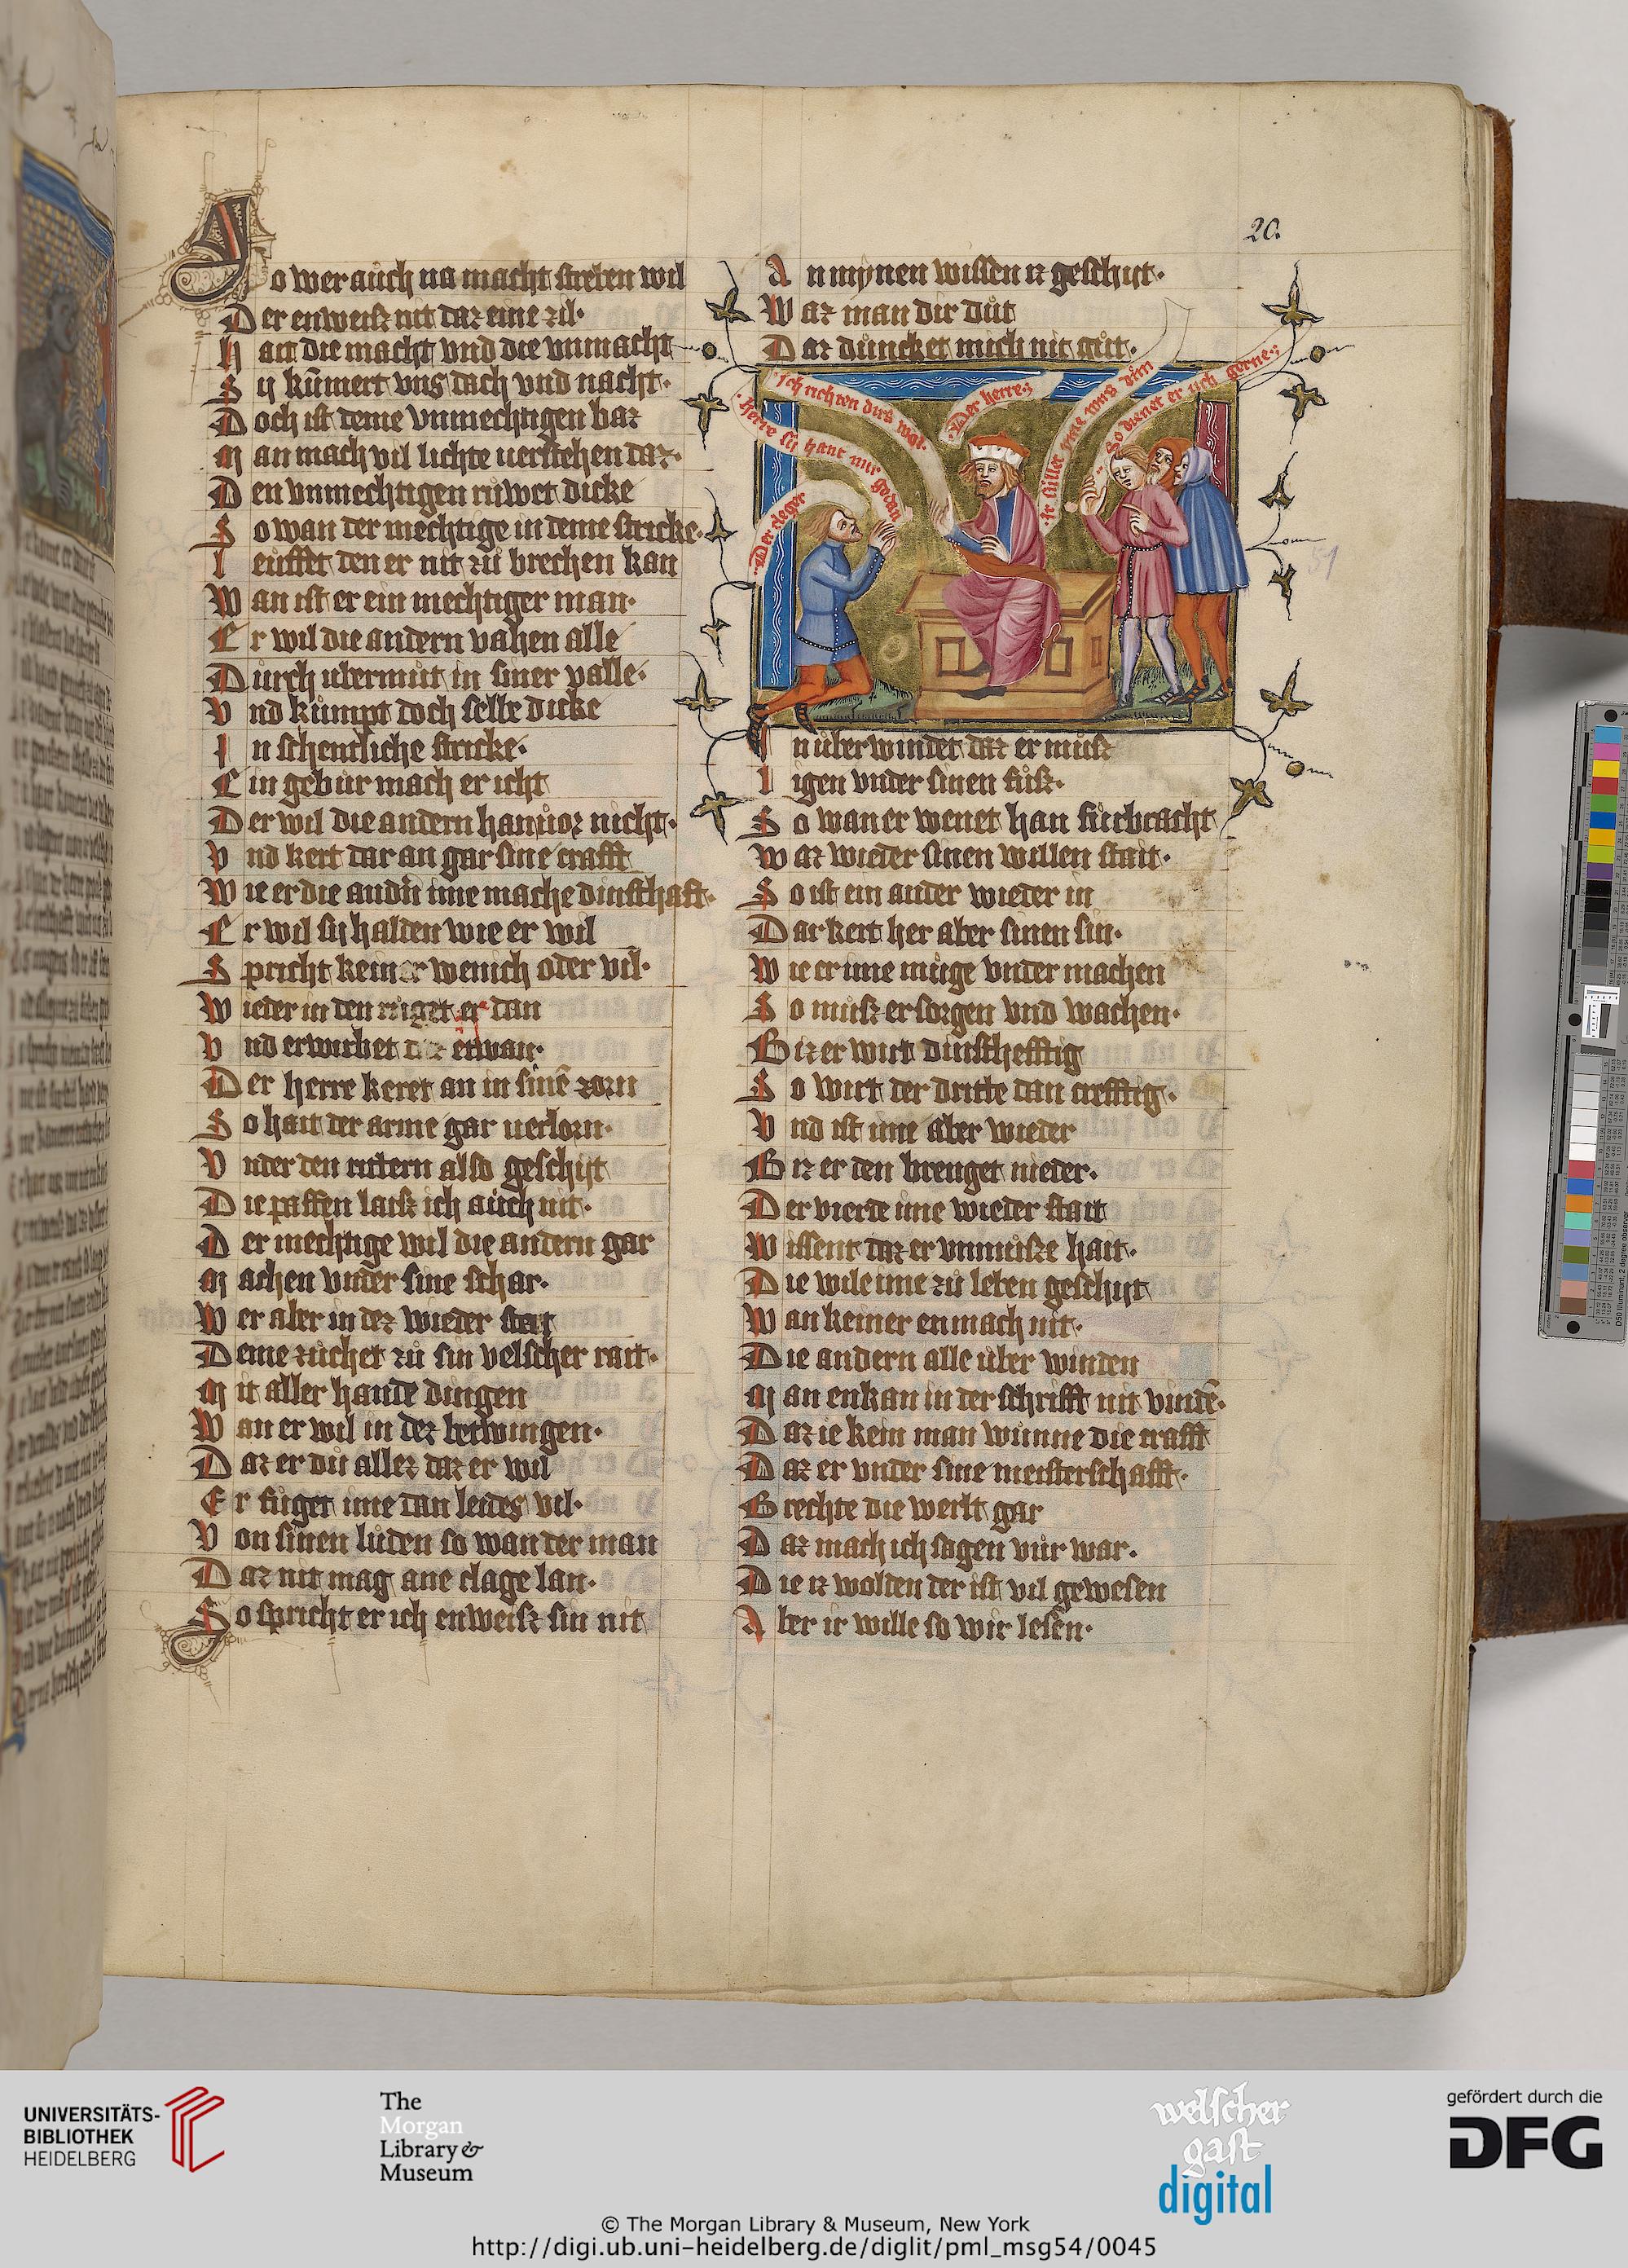 20.
So wer auch na macht streben wil
Der enweiſz nit daz eine zil·
Hait die macht vnd die vnmacht
Sy kūmert vns dach vnd nacht·
Doch ist deme vnmechtigen baz
Man mach vil lichte uerstehen daz·
Den vnmechtigen ruwet dicke
So wan der mechtige in deme stricke·
leufft den er nit zů brechen kan
Wan ist er ein mechtiger man·
Er wil die andern vahen alle
Durch ubermůt in siner valle·
Vnd kůmpt doch selbe dicke
In schentliche stricke·
Ein gebur mach er icht
Der wil die andern han vůr nicht·
Vnd kert dar an gar sine crafft
Wie er die andn̄ ime mache dinsthaft·
Er wil sy halden wie er wil
Spricht keiner wenich oder vil·
Wieder in den růget er dan
Vnd erwirbet daz etwan·
Der herre keret an in sinē zorn
So hait der arme gar uerlorn·
Vnder den rittern also geschyt
Die paffen laiſz ich auch nit·
Der mechtige wil die andern gar
Machen vnder sine schar·
Wer aber in dez wieder stet
Deme zůchet zů sin velscher rait·
Mit aller hande dingen
Wan er wil in dez betwingen·
Daz er dů allez daz er wil
Er fůget ime dan leides vil·
Von sinen luden so wan der man
Daz nit mag ane clage lan·
So spricht er ich enweiſz sin nit
An mynen wissen iz geschyt·
Waz man dir důt
Daz důncket mich nit gůt·
Der cleger
herre sy hant mir gedan
ich richten dirs wol·
Der herre
ir sullet
so dienet er uch gerne
In uberwindet daz er můſz
ligen vnder sinen fůſz·
So wan er wenet han fůrbracht
Waz wieder sinen willen stait·
So ist ein ander wieder in
Dar kert her aber sinen sin·
Wie er ime můge vnder machen
So můſz er sorgen vnd wachen·
Biz er wirt dinsthefftig
So wirt der dritte dan crefftig·
Vnd ist ime aber wieder
Biz er den brenget nieder·
Der vierde ime wieder stait
Wissent daz er vnmůſze hait·
Die wile ime zů leben geschyt
Wan keiner enmach nit·
Die andern alle uber winden
Man enkan in der schrifft nit vindē·
Daz ie kein man wůnne die crafft
Daz er vnder sine meisterschafft·
Brechte die werlt gar
Daz mach ich sagen vůr war·
Die iz wolden der ist vil gewesen
Aber ir wille so wir lesen·
51
UNIVERSITÄTS-
BIBLIOTHEK
HEIDELBERG
The
Morgan
Library &
Museum
welscher
gast
digital
gefördert durch die
DFG
© The Morgan Library & Museum, New York
http://digi.ub.uni-heidelberg.de/diglit/pml_msg54/0045